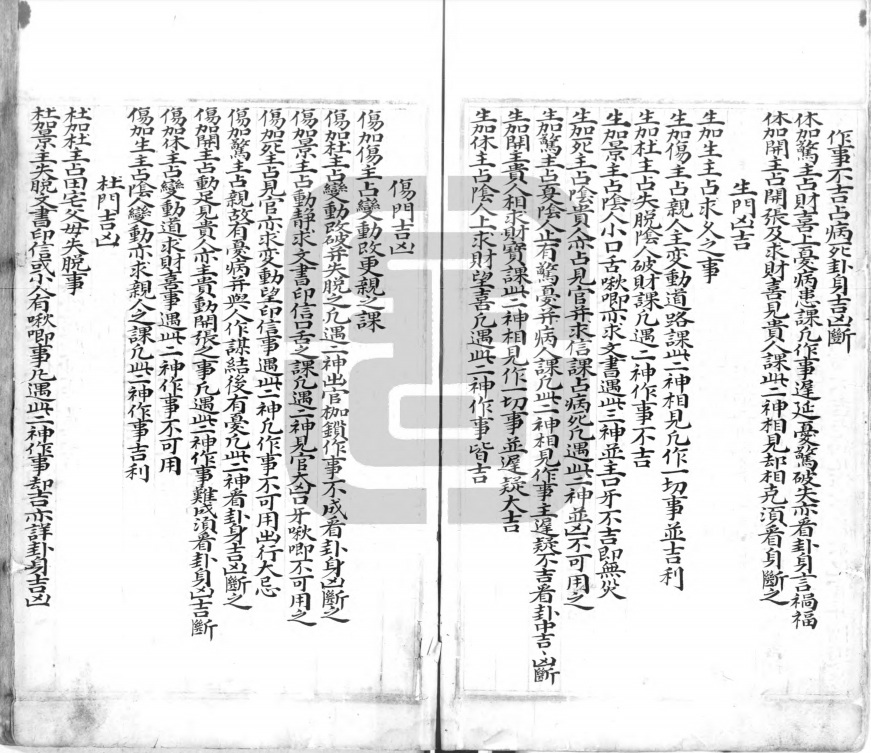 作事不吉占病死卦身吉凶斷
休加驚主占財喜上憂病患課凡作事遲延憂驚破失亦看卦身言禍福
休加開主占開張及求財喜見貴人課此二神相見却相克須看身斷之
生門凶吉
生加生主占求久之事
生加傷主占親人主变動道路課此二神相見凡作一切事並吉利
生加杜主占失脫陰人破財課凡遇二神作事不吉
生加景主占陰人小口舌啾唧亦求文書遇此三神並主口牙不吉即無災
生加死主占陰貴人亦占見官并求信課占病死凡遇此二神並凶不可用之
生加驚主占憂陰人上有驚憂并病人課凡此二神相見作事主遲疑不吉看卦中吉、凶斷
生加開主貴人相求財寶課此二神相見作一切事並遲疑大吉
生加休主占陰人上求財望喜凡遇此二神作事皆吉
傷門吉凶
傷加傷主占變動改更親之課
傷加杜主占變動改破并失脫之凡遇二神出官枷鎖作事不成看卦身凶斷之
傷加景主占動靜求文書印信口舌之課凡遇二神見官大凶口牙啾唧不可用之
傷加死主占見官亦求变動望印信事遇此二神凡作事不可用出行大忌
傷加驚主占親故有憂病并與人作謀結後有憂凡此二神看卦身吉凶斷之
傷加開主占動足見貴人亦主貴動開張之事凡遇此二神作事難成須看卦身凶吉斷
傷加休主占變動道求財喜事遇此二神作事不可用
傷加生主占陰人變動亦求親人之課凡此二神作事吉利
杜門吉凶
杜加杜主占田宅父母失脫事
杜加景主失脫文書印信或小人有啾唧事凡遇此二神作事却吉亦詳卦身吉凶